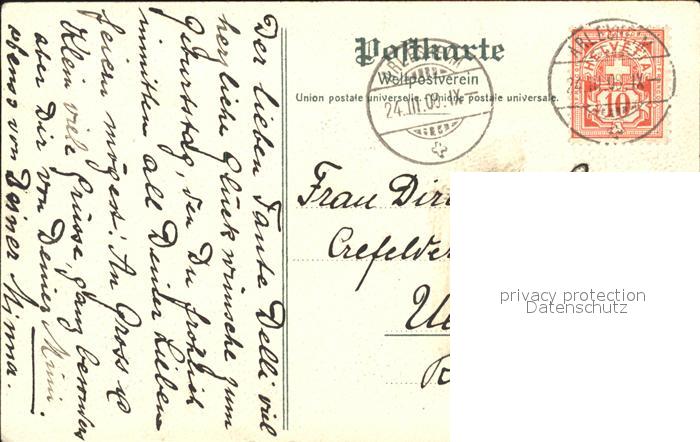 Der lieben Tante Delli viel
herzliche Glückwünsche zum
Geburtstag, den Du fröhlich
inmitten all Deiner Lieben
feiern mögest! An Gross &
Klein viele Grüsse, ganz besonders
aber Dir von Deiner Mimi.
ebenso von Deiner Minna.
Postkarte
Weltpostverein
Union postale universelle. Unione postale universale.
24.III.09.IX
HELVETIA
10
Frau Dir
Crefelder
privacy protection
Datenschutz